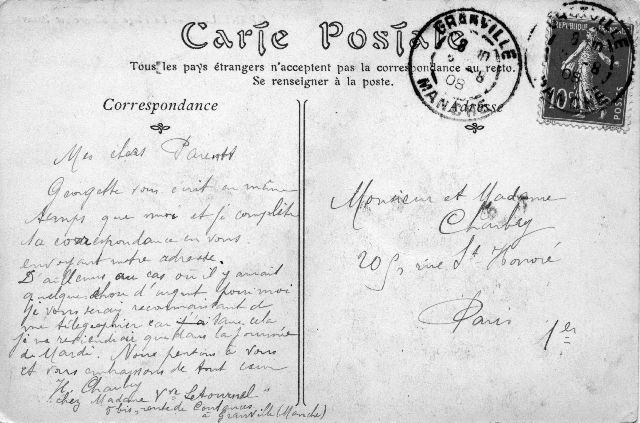 Carte Postale
Tous les pays étrangers n'acceptent pas la correspondance au recto.
Se renseigner à la poste.
Correspondance
Adresse
GRANVILLE
MANCHE
08
GRANVILLE
08
MANCHE
10
POSTES
Mes chers Parents
Georgette vous écrit en même
temps que moi et je complète
sa correspondance en vous
envoyant notre adresse.
D'ailleurs au cas où il y aurait
quelque chose d'urgent pour moi
je vous serais reconnaissant de
me télégraphier car sans cela
je ne que dans la journée
de Mardi. Nous pensons à vous
et vous embrassons de tout cœur
H. Charbey
chez Madame Vve Letournel
6 bis, route de
à Granville (Manche)
Monsieur et Madame
Charbey
205 rue St Honoré
Paris
1er